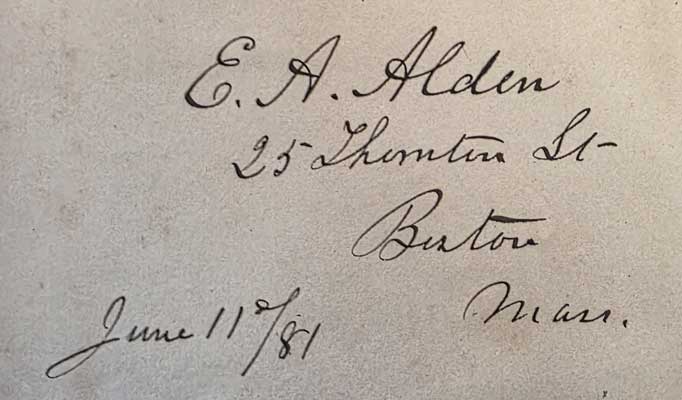 E. A. Alden
25 Thornton St
Boston
Mass.
June 11th/81